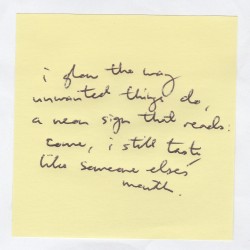 i glow the way
unwanted things do,
a neon sign that reads:
come, i still taste
like someone else's
mouth.